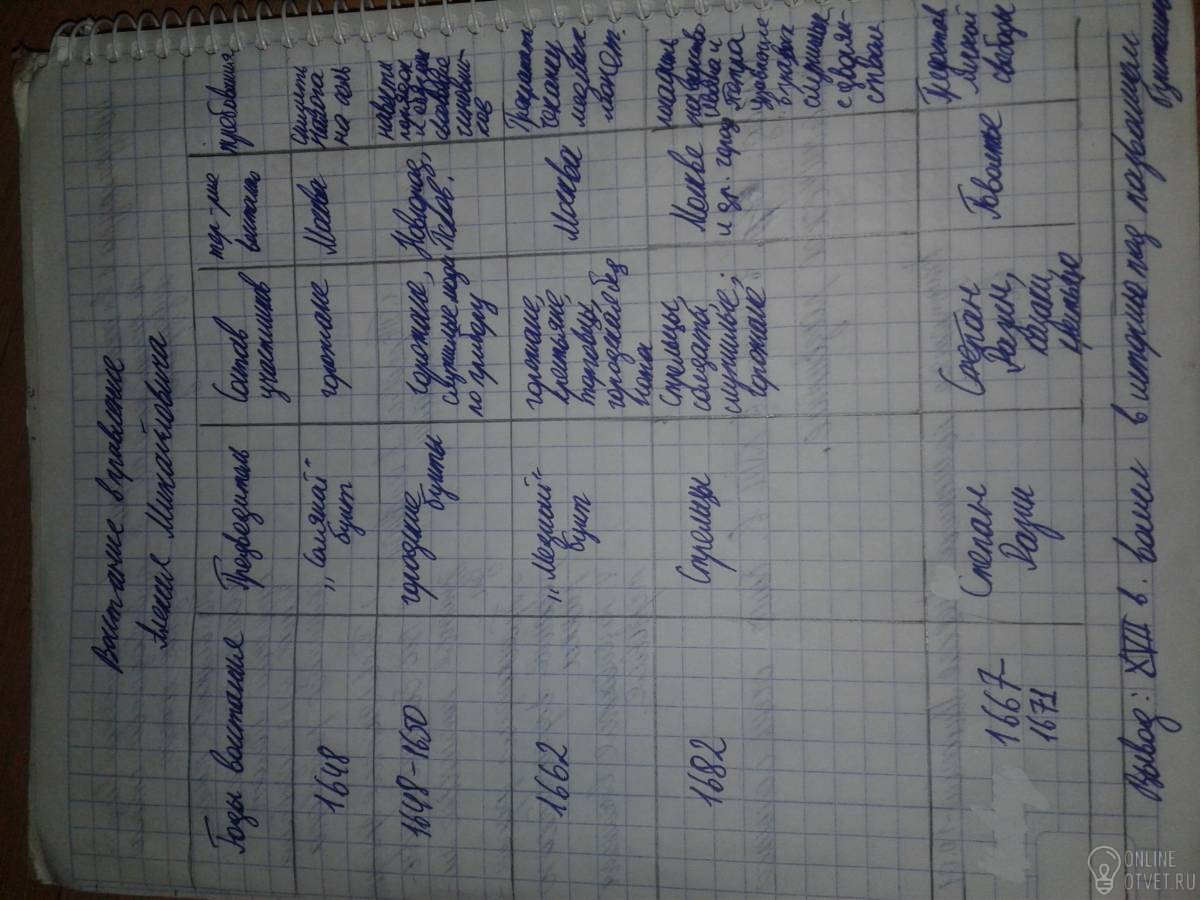 Восстание в правление
Алексея Михайловича
Годы восстания
Предводитель
Состав
участников
тер-рия
восстания
требования
1648
"Соляной"
бунт
горожане
Москва
Снизить
налоги
на соль
1648-1650
городские
бунты
горожане,
служилые люди
по прибору
Новгород,
Псков.
навести
порядок
и
1662
"Медный"
бунт
горожане,
крестьяне,
торговцы,
Москва
Прекратить
чеканку
медных
монет.
1682
Стрельцы
стрельцы,
солдаты
служилые,
горожане
Москве
и др. город
Петра
в правах
служилых
с дворян-
ством
1667-
1671
Степан
Разин
Степан
Разин,
казаки,
Поволжье
свободы
Вывод: XVII в. вошел в историю под названием
бунташный
ONLINE
OTVET.RU